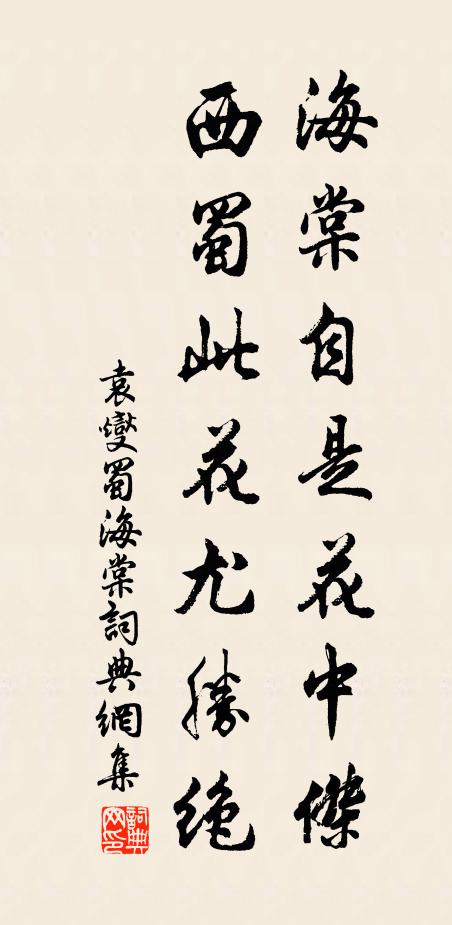 海棠自是花中傑
西蜀此花尤勝絕
袁燮蜀海棠詞典網集
詞典網印